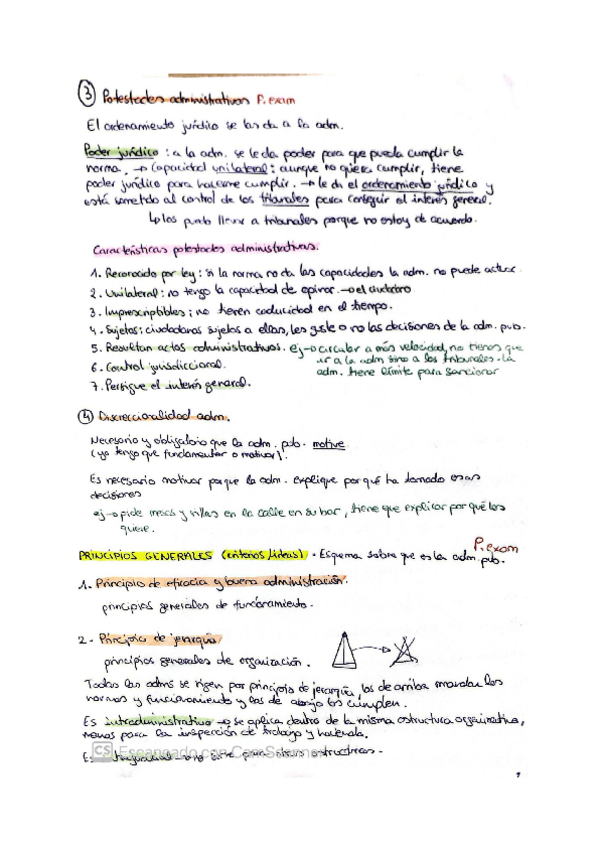 ③ Potestades administrativas P. exam
El ordenamiento jurídico se las da a la adm.
Poder jurídico: a la adm. se le da poder para que pueda cumplir la
norma. → Capacidad unilateral: aunque no quiera cumplir, tiene
poder jurídico para hacerme cumplir. → le da el ordenamiento jurídico y
está sometido al control de los tribunales para conseguir el interés general.
↳ los puedo llevar a tribunales porque no estoy de acuerdo.
Características potestades administrativas.
1. Reconocido por ley: si la norma no da las capacidades la adm. no puede actuar.
2. Unilateral: no tengo la capacidad de opinar. → el ciudadano
3. Imprescriptibles: no tienen caducidad en el tiempo.
4. Sujetos: ciudadanos sujetos a ellas, les guste o no las decisiones de la adm. pub.
5. Resultan actos administrativos. ej → circular a más velocidad, no tienes que
ir a la adm sino a los tribunales. La
6. Control jurisdiccional.
adm. tiene límite para sancionar
7. Persigue el interés general.
④ Discrecionalidad adm.
Necesario y obligatorio que la adm. pub. motive
(yo tengo que fundamentar o motivar).
Es necesario motivar porque la adm. explique por qué ha tomado esas
decisiones
ej → pide mesas y sillas en la calle en su bar, tiene que explicar por qué los
quiere.
P. exam
PRINCIPIOS GENERALES (criterios, ideas). Esquema sobre que es la adm. pub.
1. Principio de eficacia y buena administración.
principios generales de funcionamiento.
2. Principio de jerarquía
principios generales de organización.
Todas las adms se rigen por principio de jerarquía, los de arriba mandan las
normas y funcionamiento y los de abajo los cumplen.
Es intraadministrativo → se aplica dentro de la misma estructura organizativa,
menos para la inspección de trabajo y hacienda.
CS Escaneado con CamScanner